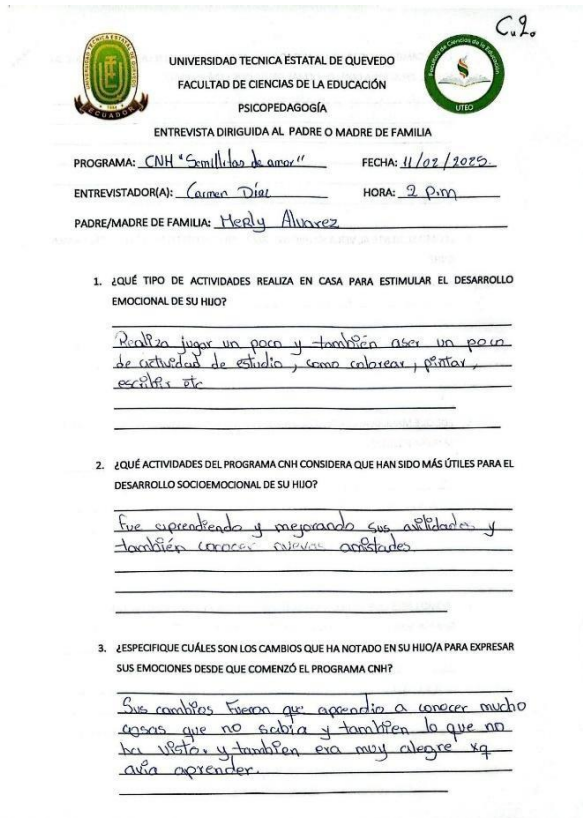 C.2.
UNIVERSIDAD TECNICA ESTATAL DE QUEVEDO
FACULTAD DE CIENCIAS DE LA EDUCACIÓN
PSICOPEDAGOGÍA
ENTREVISTA DIRIGUIDA AL PADRE O MADRE DE FAMILIA
PROGRAMA: CNH "Semillitas de amor" FECHA: 11/02/2025
ENTREVISTADOR(A): Carmen Díaz HORA: 2 p.m
PADRE/MADRE DE FAMILIA: Merly Alvarez
1. ¿QUÉ TIPO DE ACTIVIDADES REALIZA EN CASA PARA ESTIMULAR EL DESARROLLO
EMOCIONAL DE SU HIJO?
Realiza jugar un poco y también aser un poco
de actividad de estudio, como colorear, pintar,
escribir etc
2. ¿QUÉ ACTIVIDADES DEL PROGRAMA CNH CONSIDERA QUE HAN SIDO MÁS ÚTILES PARA EL
DESARROLLO SOCIOEMOCIONAL DE SU HIJO?
Fue aprendiendo y mejorando sus avilidades y
también conocer nuevas amistades
3. ¿ESPECIFIQUE CUÁLES SON LOS CAMBIOS QUE HA NOTADO EN SU HIJO/A PARA EXPRESAR
SUS EMOCIONES DESDE QUE COMENZÓ EL PROGRAMA CNH?
Sus cambios fueron que aprendio a conocer mucho
cosas que no sabia y tambien lo que no
ha visto. y tambien era muy alegre xq
avia aprender.
ECUADOR
Facultad de Ciencias de la Educación
UTEQ